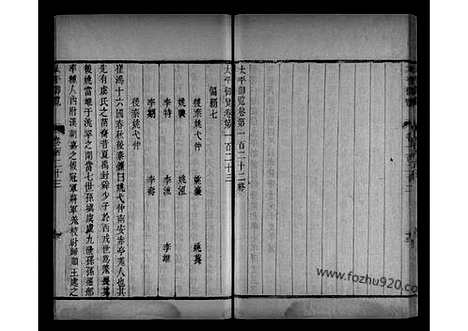 太平御覽卷第一百二十二終
太平御覽卷第一百二十三
偏霸七
後秦姚弋仲　姚襄　姚萇
姚興　姚泓
李特　李流　李雄
李期　李壽
後秦姚弋仲
崔鴻十六國春秋後秦錄曰姚弋仲南安赤亭羌人也其
先有虞氏之苗裔昔夏禹封舜少子於西戎世為羌酋其
後燒當雄于洮罕之間當七世孫填虞九世孫遷那
率種人內附漢朝嘉之假冠軍將軍西羌校尉歸順王處之
www.fozhu920.com